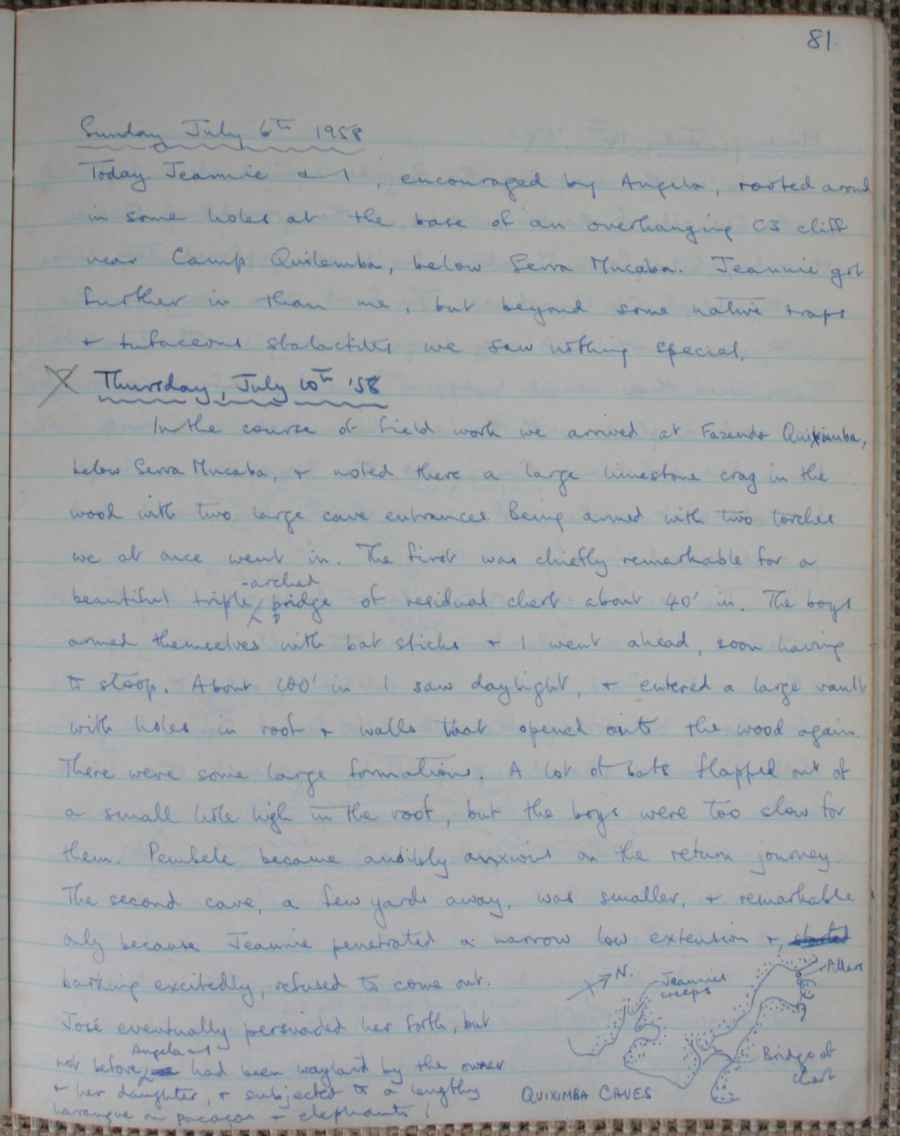 81
Sunday July 6th 1958
Today Jeannie & I, encouraged by Angela, rooted around
in some holes at the base of an overhanging C3 cliff
near Camp Quilemba, below Serra Mucaba. Jeannie got
further in than me, but beyond some native traps
& tufaceous stalactites we saw nothing special.
X Thursday, July 10th '58
In the course of field work we arrived at Fazenda Quiximba,
below Serra Mucaba, & noted there a large limestone crag in the
wood with two large cave entrances. Being armed with two torches
we at once went in. The first was chiefly remarkable for a
beautiful triple-arched bridge of residual chert about 40' in. The boys
armed themselves with bat sticks & I went ahead, soon having
to stoop. About 100' in I saw daylight, & entered a large vault
with holes in roof & walls that opened onto the wood again.
There were some large formations. A lot of bats flapped out of
a small hole high in the roof, but the boys were too slow for
them. Pembele became audibly anxious on the return journey.
The second cave, a few yards away, was smaller, & remarkable
only because Jeannie penetrated a narrow low extension &, started
barking excitedly, refused to come out.
José eventually persuaded her forth, but
not before Angela and I had been waylaid by the owner
& her daughter, & subjected to a lengthy
harangue on pacaças & elephants!
N.
Jeannie
creeps
Pillars
Bridge of
chert
QUIXIMBA CAVES